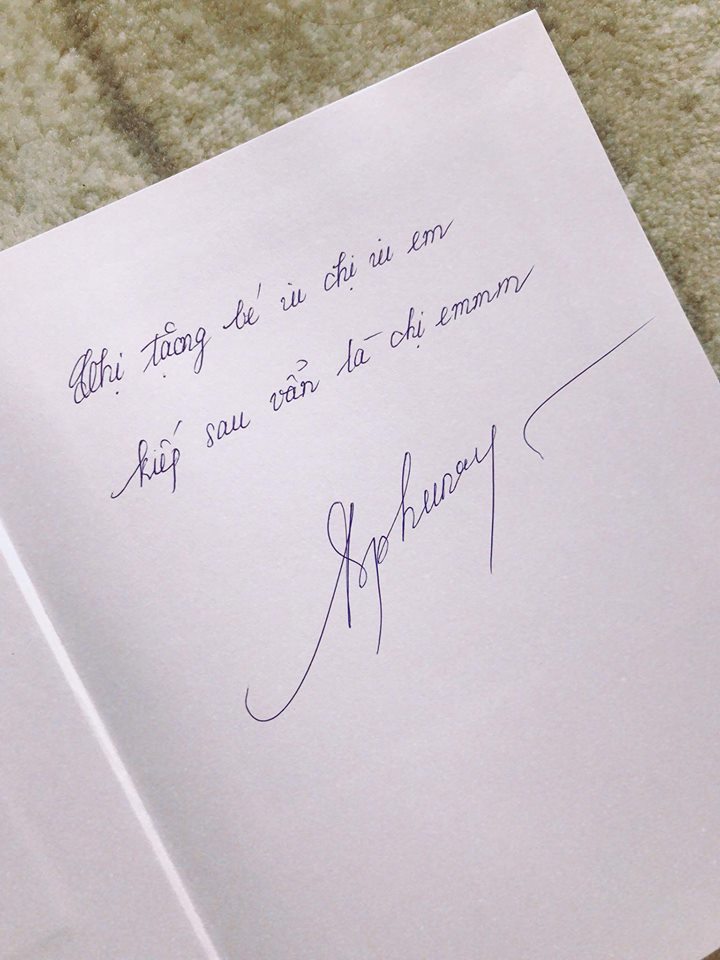 Chị tặng bé iu chị iu em
kiếp sau vẫn là chị emmm